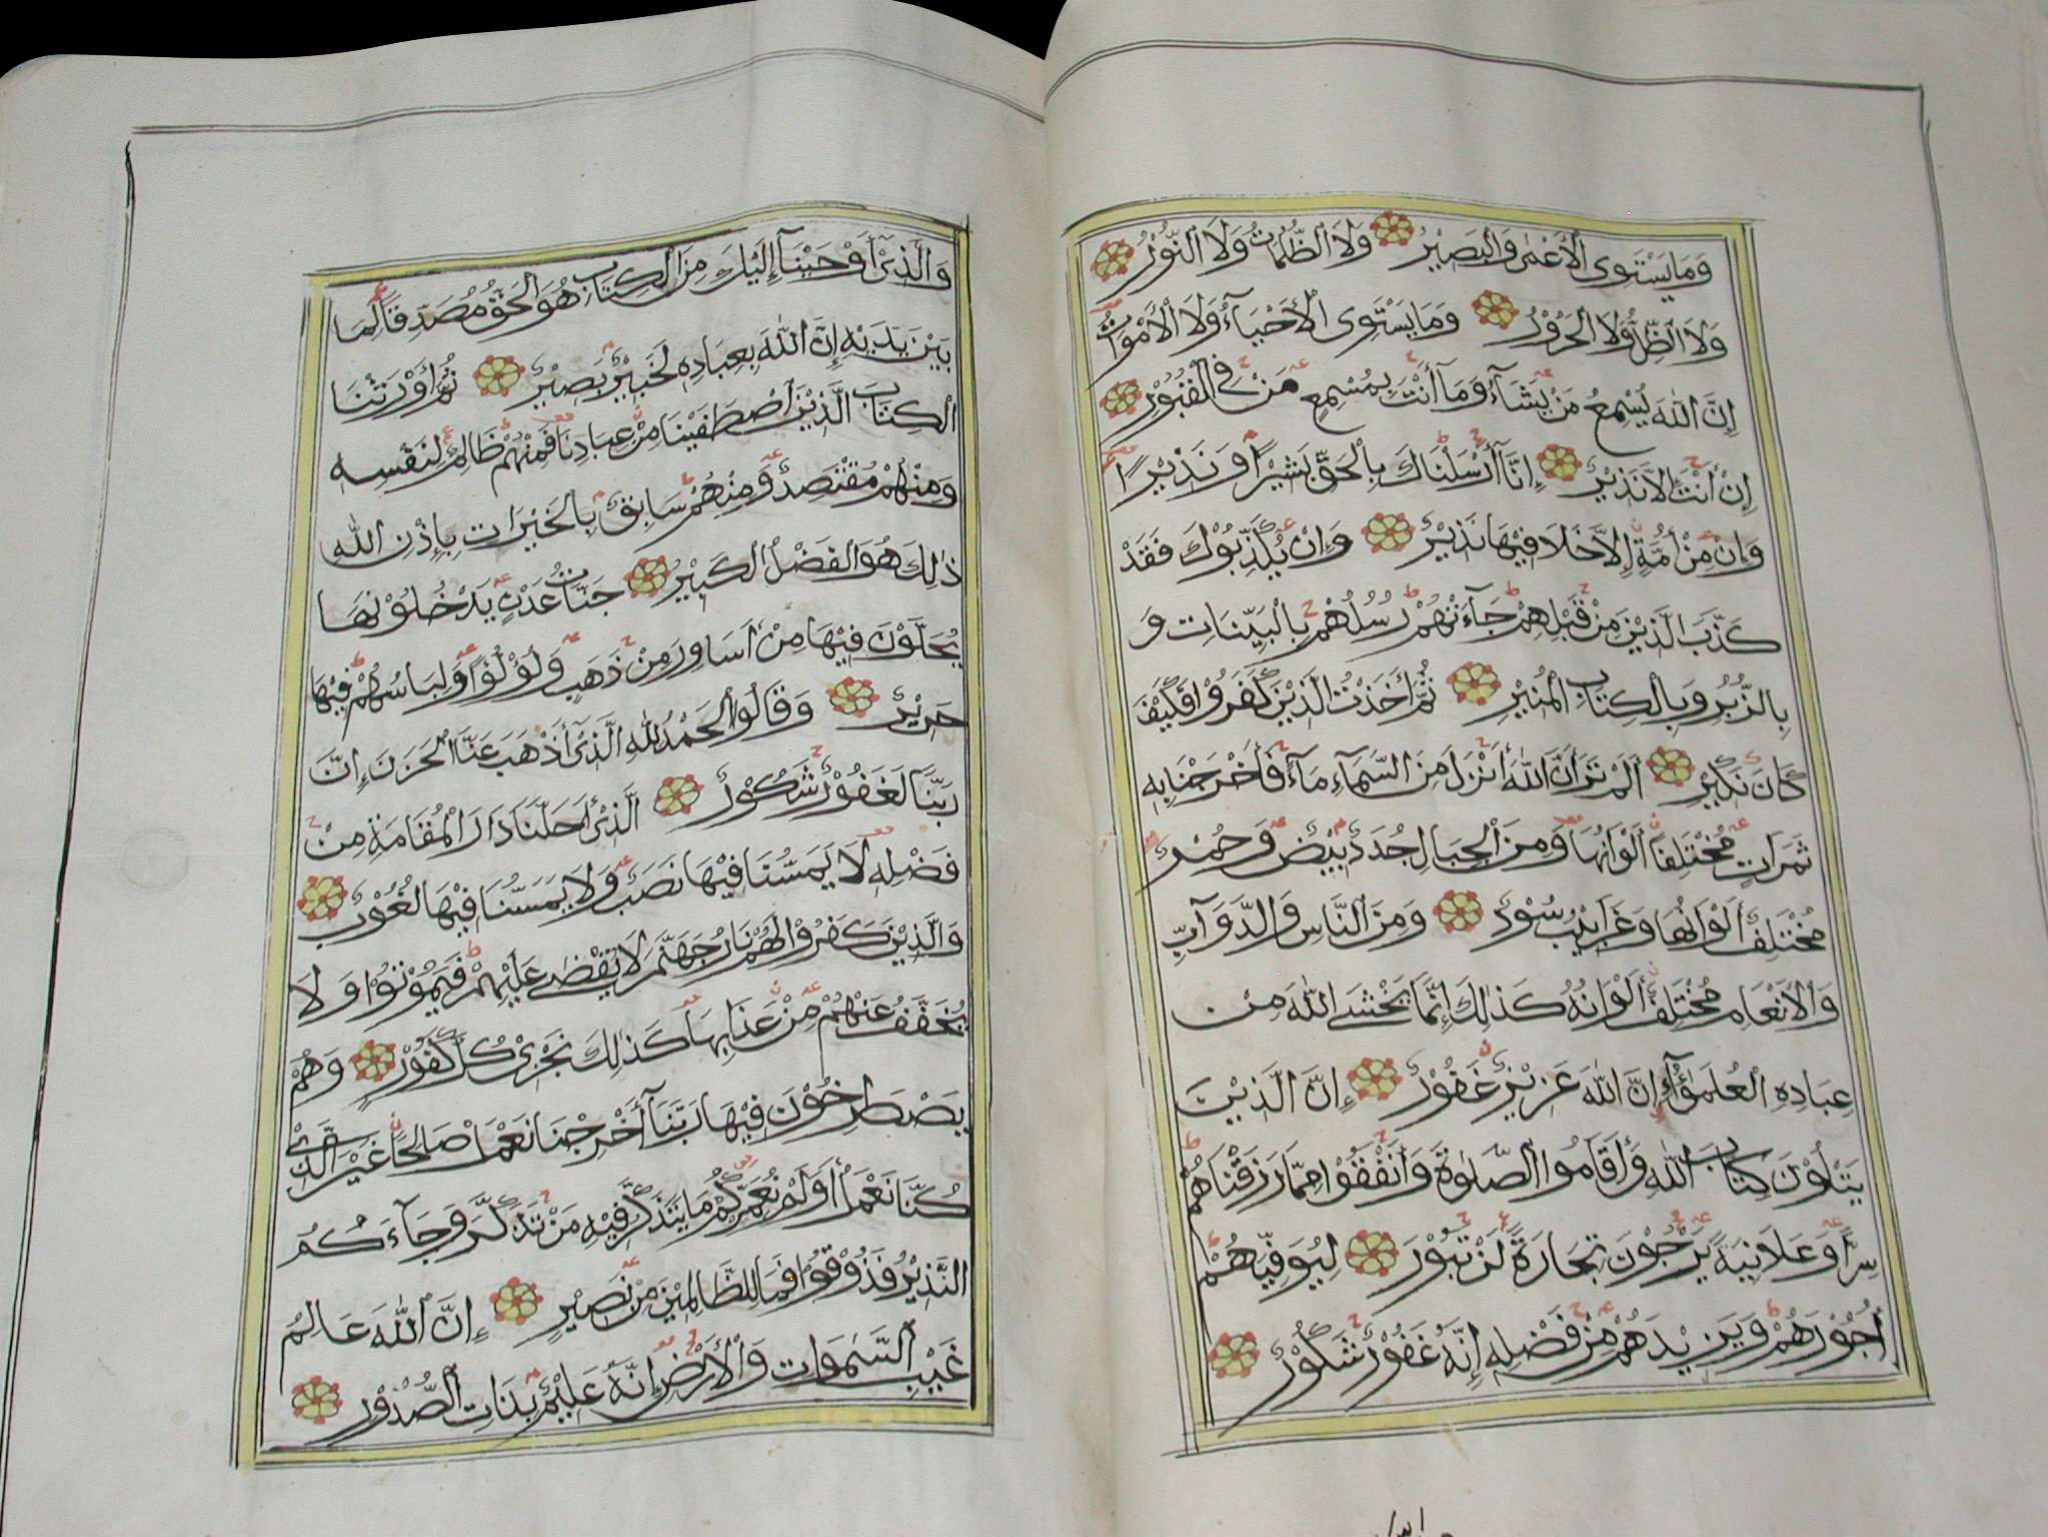 وَمَا يَسْتَوِى الْأَعْمٰى وَالْبَصِيْرُ وَلَا الظُّلُمَاتُ وَلَا النُّوْرُ
وَلَا الظِّلُّ وَلَا الْحَرُوْرُ وَمَا يَسْتَوِى الْأَحْيَآءُ وَلَا الْأَمْوَاتُ
إِنَّ اللّٰهَ يُسْمِعُ مَنْ يَشَآءُ وَمَآ أَنْتَ بِمُسْمِعٍ مَنْ فِى الْقُبُوْرِ
إِنْ أَنْتَ إِلَّا نَذِيْرٌ إِنَّآ أَرْسَلْنَاكَ بِالْحَقِّ بَشِيْرًا وَنَذِيْرًا
وَإِنْ مِنْ أُمَّةٍ إِلَّا خَلَا فِيْهَا نَذِيْرٌ وَإِنْ يُكَذِّبُوْكَ فَقَدْ
كَذَّبَ الَّذِيْنَ مِنْ قَبْلِهِمْ جَآءَتْهُمْ رُسُلُهُمْ بِالْبَيِّنَاتِ وَ
بِالزُّبُرِ وَبِالْكِتَابِ الْمُنِيْرِ ثُمَّ أَخَذْتُ الَّذِيْنَ كَفَرُوْا فَكَيْفَ
كَانَ نَكِيْرِ أَلَمْ تَرَ أَنَّ اللّٰهَ أَنْزَلَ مِنَ السَّمَآءِ مَآءً فَأَخْرَجْنَا بِهِ
ثَمَرَاتٍ مُخْتَلِفًا أَلْوَانُهَا وَمِنَ الْجِبَالِ جُدَدٌ بِيْضٌ وَحُمْرٌ
مُخْتَلِفٌ أَلْوَانُهَا وَغَرَابِيْبُ سُوْدٌ وَمِنَ النَّاسِ وَالدَّوَآبِّ
وَالْأَنْعَامِ مُخْتَلِفٌ أَلْوَانُهُ كَذٰلِكَ إِنَّمَا يَخْشَى اللّٰهَ مِنْ
عِبَادِهِ الْعُلَمٰؤُا إِنَّ اللّٰهَ عَزِيْزٌ غَفُوْرٌ إِنَّ الَّذِيْنَ
يَتْلُوْنَ كِتَابَ اللّٰهِ وَأَقَامُوا الصَّلٰوةَ وَأَنْفَقُوْا مِمَّا رَزَقْنَاهُمْ
سِرًّا وَعَلَانِيَةً يَرْجُوْنَ تِجَارَةً لَنْ تَبُوْرَ لِيُوَفِّيَهُمْ
أُجُوْرَهُمْ وَيَزِيْدَهُمْ مِنْ فَضْلِهِ إِنَّهُ غَفُوْرٌ شَكُوْرٌ
وَالَّذِىْٓ أَوْحَيْنَآ إِلَيْكَ مِنَ الْكِتَابِ هُوَ الْحَقُّ مُصَدِّقًا لِمَا
بَيْنَ يَدَيْهِ إِنَّ اللّٰهَ بِعِبَادِهِ لَخَبِيْرٌ بَصِيْرٌ ثُمَّ أَوْرَثْنَا
الْكِتَابَ الَّذِيْنَ اصْطَفَيْنَا مِنْ عِبَادِنَا فَمِنْهُمْ ظَالِمٌ لِنَفْسِهِ
وَمِنْهُمْ مُقْتَصِدٌ وَمِنْهُمْ سَابِقٌ بِالْخَيْرَاتِ بِإِذْنِ اللّٰهِ
ذٰلِكَ هُوَ الْفَضْلُ الْكَبِيْرُ جَنَّاتُ عَدْنٍ يَدْخُلُوْنَهَا
يُحَلَّوْنَ فِيْهَا مِنْ أَسَاوِرَ مِنْ ذَهَبٍ وَلُؤْلُؤًا وَلِبَاسُهُمْ فِيْهَا
حَرِيْرٌ وَقَالُوا الْحَمْدُ لِلّٰهِ الَّذِىْٓ أَذْهَبَ عَنَّا الْحَزَنَ إِنَّ
رَبَّنَا لَغَفُوْرٌ شَكُوْرٌ الَّذِىْٓ أَحَلَّنَا دَارَ الْمُقَامَةِ مِنْ
فَضْلِهِ لَا يَمَسُّنَا فِيْهَا نَصَبٌ وَلَا يَمَسُّنَا فِيْهَا لُغُوْبٌ
وَالَّذِيْنَ كَفَرُوْا لَهُمْ نَارُ جَهَنَّمَ لَا يُقْضٰى عَلَيْهِمْ فَيَمُوْتُوْا وَلَا
يُخَفَّفُ عَنْهُمْ مِنْ عَذَابِهَا كَذٰلِكَ نَجْزِىْ كُلَّ كَفُوْرٍ وَهُمْ
يَصْطَرِخُوْنَ فِيْهَا رَبَّنَآ أَخْرِجْنَا نَعْمَلْ صَالِحًا غَيْرَ الَّذِىْ
كُنَّا نَعْمَلُ أَوَلَمْ نُعَمِّرْكُمْ مَا يَتَذَكَّرُ فِيْهِ مَنْ تَذَكَّرَ وَجَآءَكُمُ
النَّذِيْرُ فَذُوْقُوْا فَمَا لِلظَّالِمِيْنَ مِنْ نَصِيْرٍ إِنَّ اللّٰهَ عَالِمُ
غَيْبِ السَّمٰوَاتِ وَالْأَرْضِ إِنَّهُ عَلِيْمٌ بِذَاتِ الصُّدُوْرِ